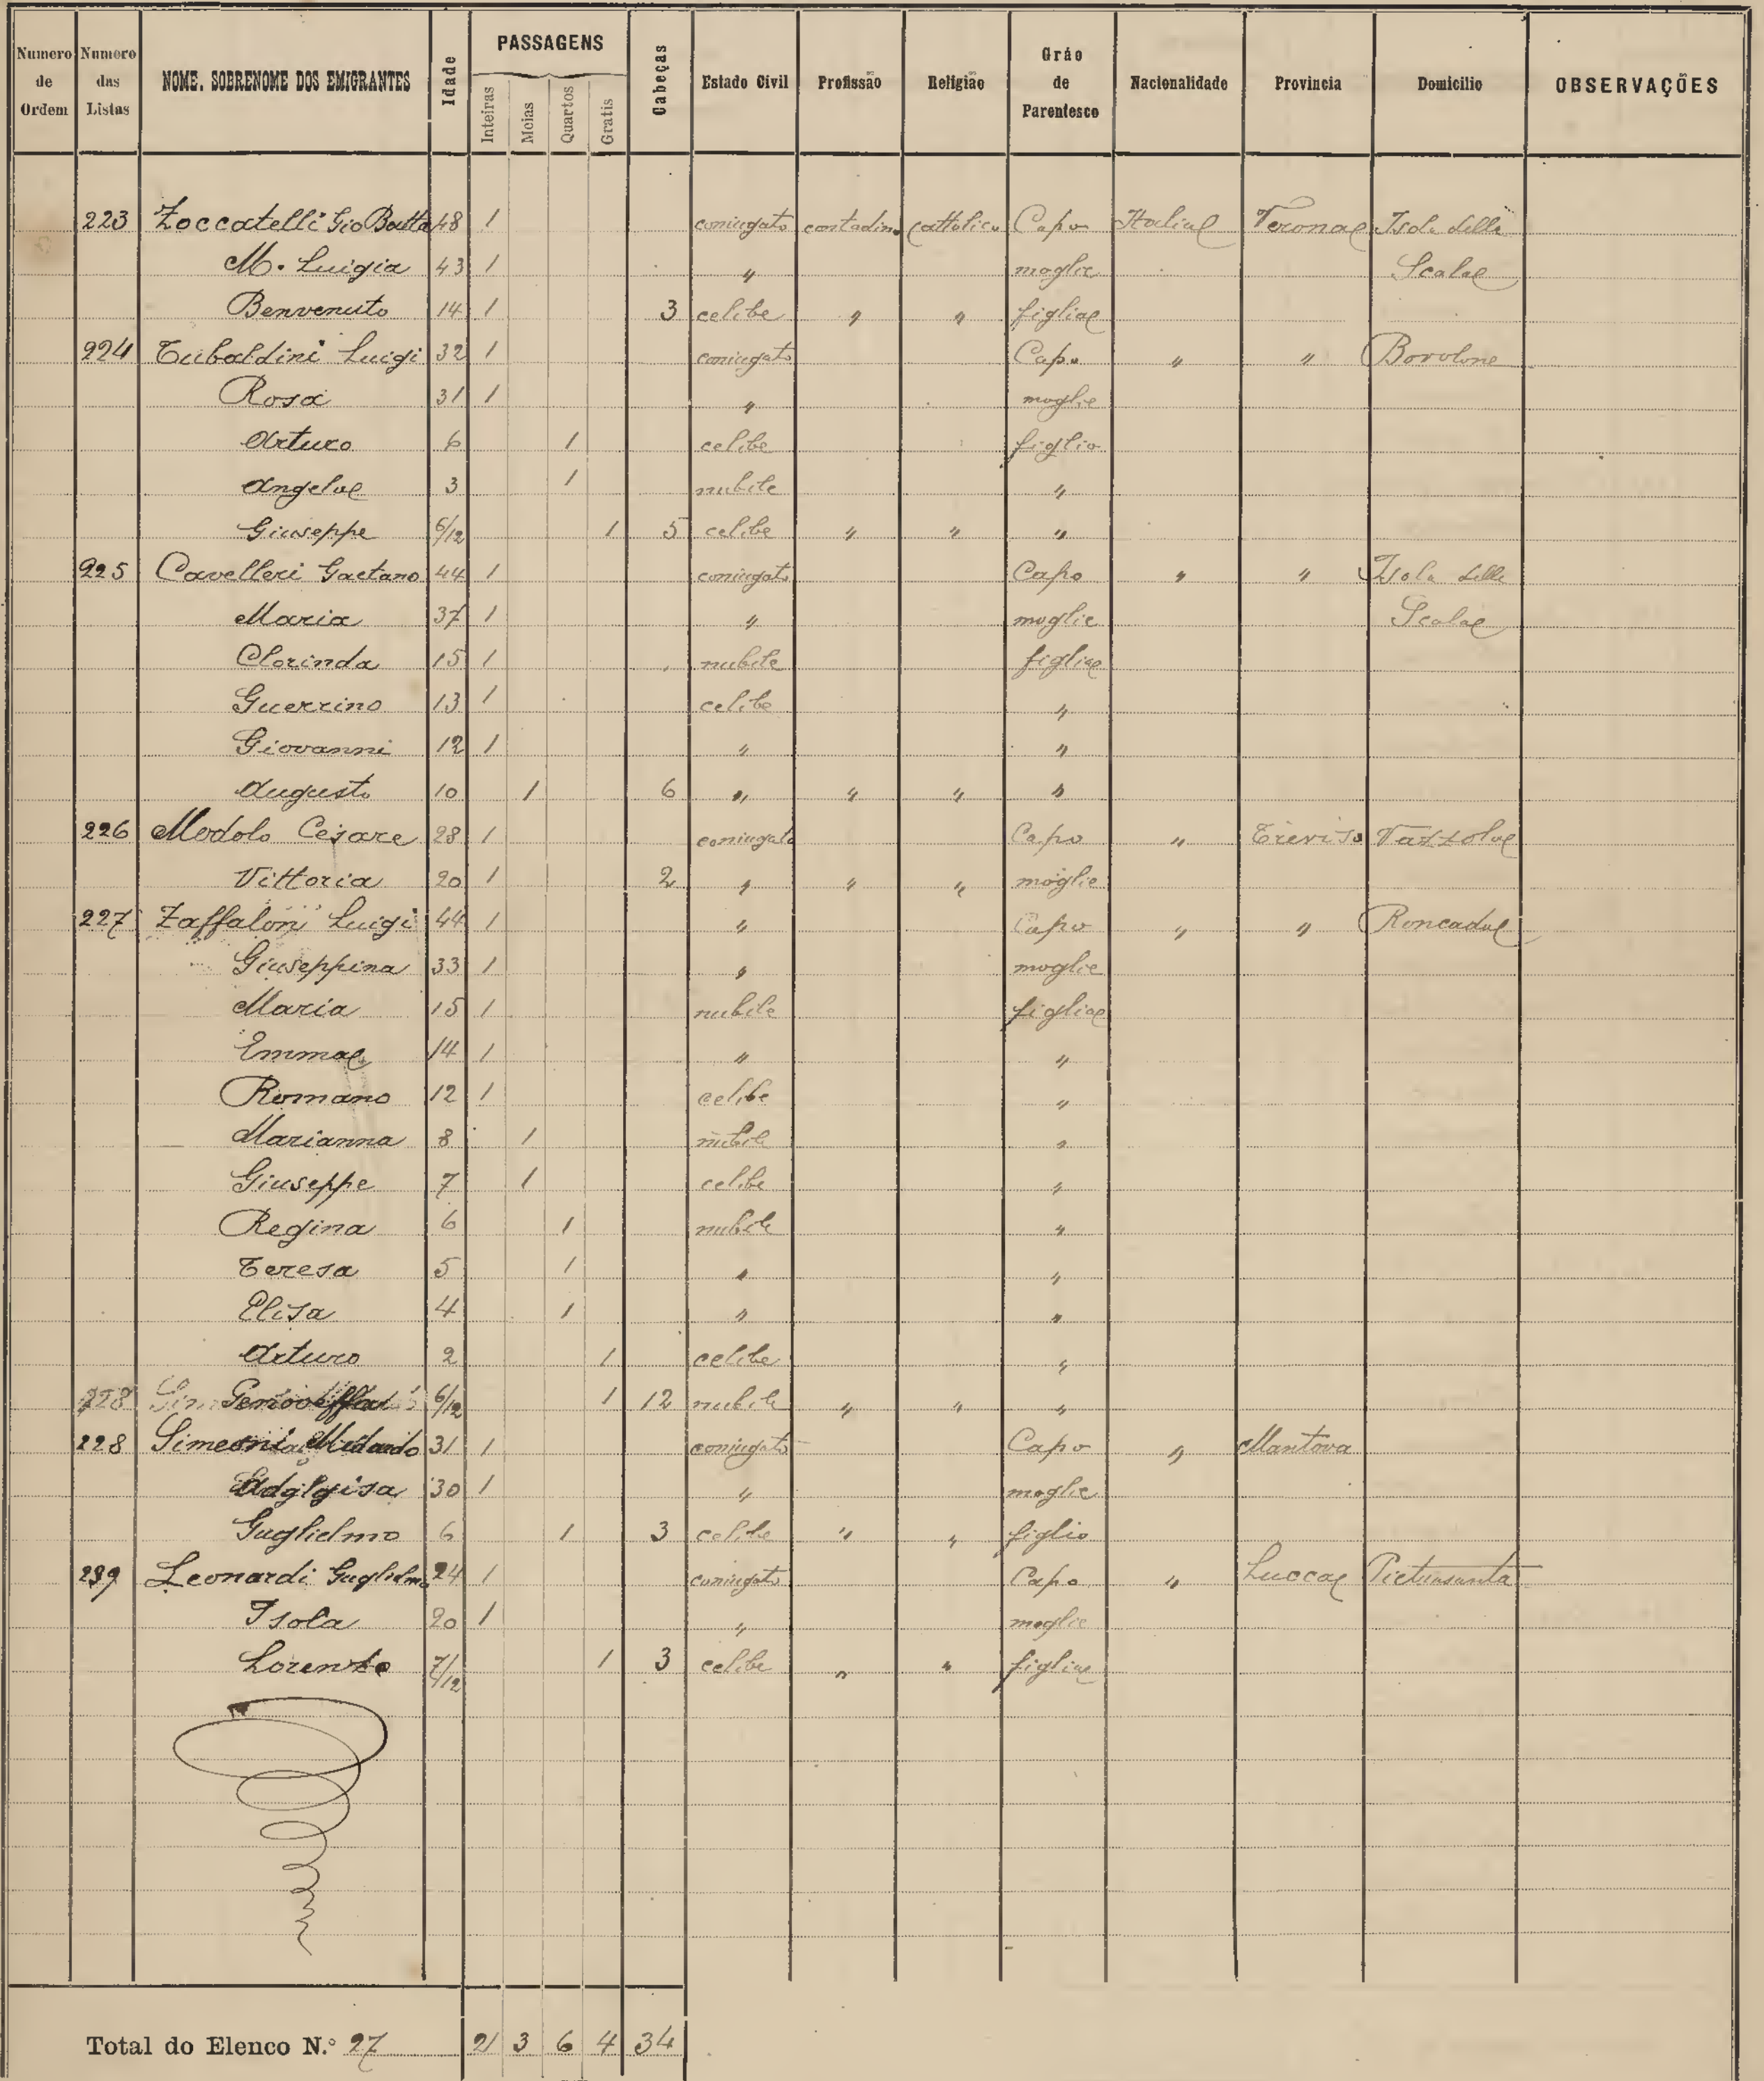 Numero de Ordem Numero das Listas NOME. SOBRENOME DOS EMIGRANTES Idade PASSAGENS Inteiras Meias Quartos Gratis Cabeças Estado Civil Profissão Religião Gráo de Parentesco Nacionalidade Provincia Domicilio OBSERVAÇÕES
223 Zoccatelli Gio Batta 48 1 coniugato contadino cattolico Capo Italia Verona Isola della
M. Luigia 43 1 " moglie Scala
Benvenuto 14 1 3 celibe " " figlia
224 Tubaldini Luigi 32 1 coniugato Capo " " Bovolone
Rosa 31 1 " moglie
Arturo 6 1 celibe figlio
Angela 3 1 nubile "
Giuseppe 6/12 1 5 celibe " " "
225 Cavelleri Gaetano 44 1 coniugato Capo " " Isola della
Maria 37 1 " moglie Scala
Clorinda 15 1 nubile figlia
Guerrino 13 1 celibe "
Giovanni 12 1 " "
Augusto 10 1 6 " " " "
226 Modolo Cesare 28 1 coniugato Capo " Treviso Vazzola
Vittoria 20 1 2 " " " moglie
227 Zaffalon Luigi 44 1 " Capo " " Roncade
Giuseppina 33 1 " moglie
Maria 15 1 nubile figlia
Emma 14 1 " "
Romano 12 1 celibe "
Marianna 8 1 nubile "
Giuseppe 7 1 celibe "
Regina 6 1 nubile "
Teresa 5 1 " "
Elisa 4 1 " "
Arturo 2 1 celibe "
228 Genoveffa 6/12 1 12 nubile " " "
228 Simeoni Medardo 31 1 coniugato Capo " Mantova
30 1 " moglie
Guglielmo 6 1 3 celibe " " figlio
229 Leonardi Guglielmo 24 1 coniugato Capo " Lucca Pietrasanta
Isola 20 1 " moglie
Lorenzo 7/12 1 3 celibe " " figlia
Total do Elenco N.º 27 21 3 6 4 34